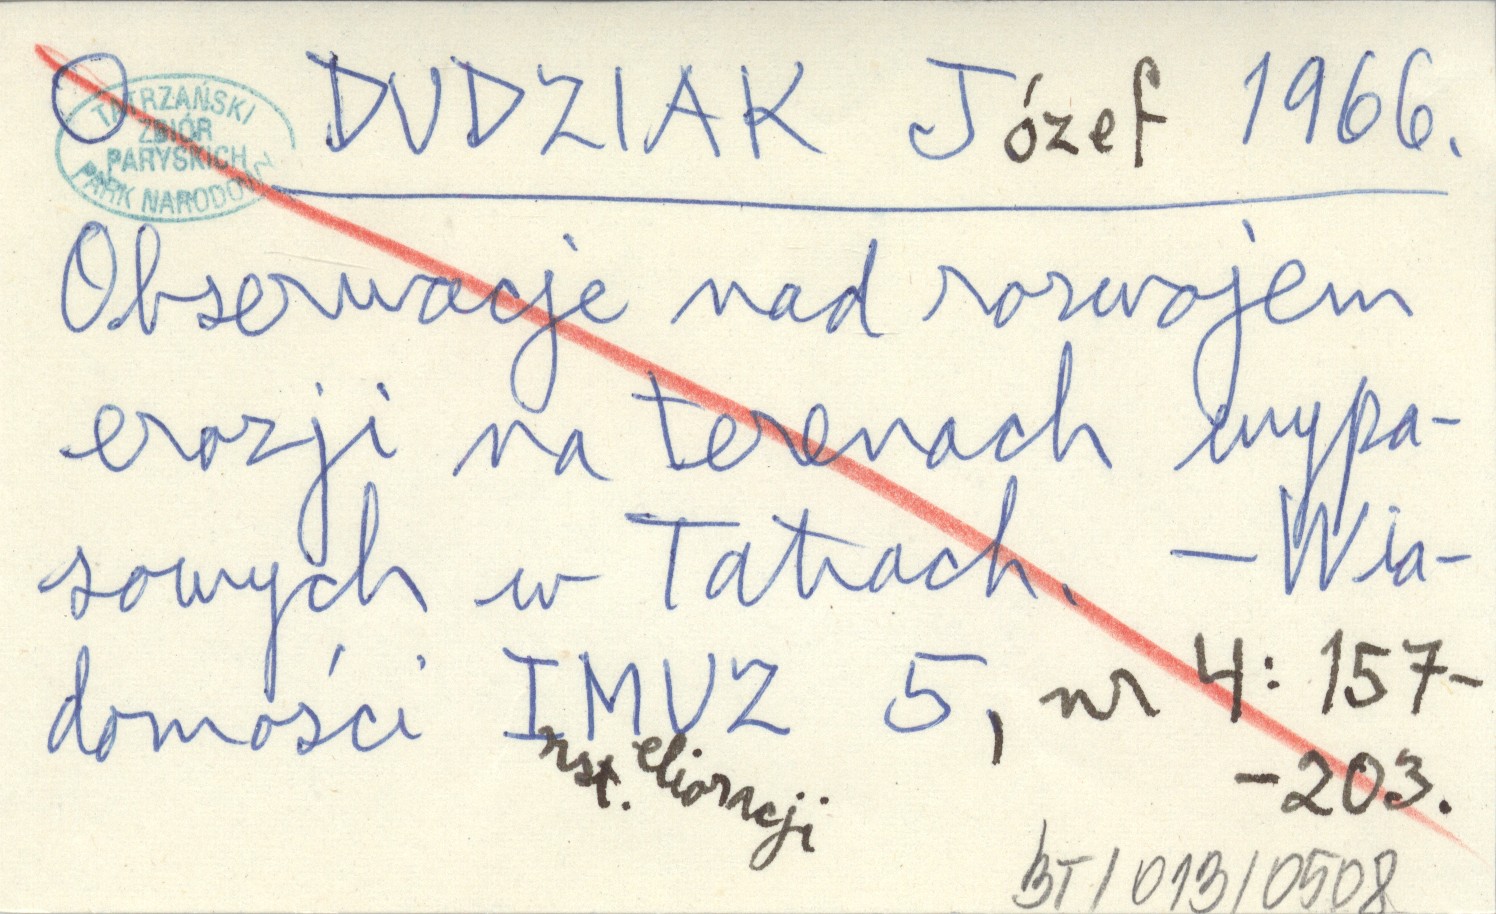 O DUDZIAK Józef 1966.
TATRZAŃSKI
ZBIÓR
PARYSKICH
PARK NARODOWY
Obserwacje nad rozwojem
erozji na terenach wypa-
sowych w Tatrach. – Wia-
domości IMUZ 5, nr 4: 157-
nst. elioracji
-203.
BT/013/0508